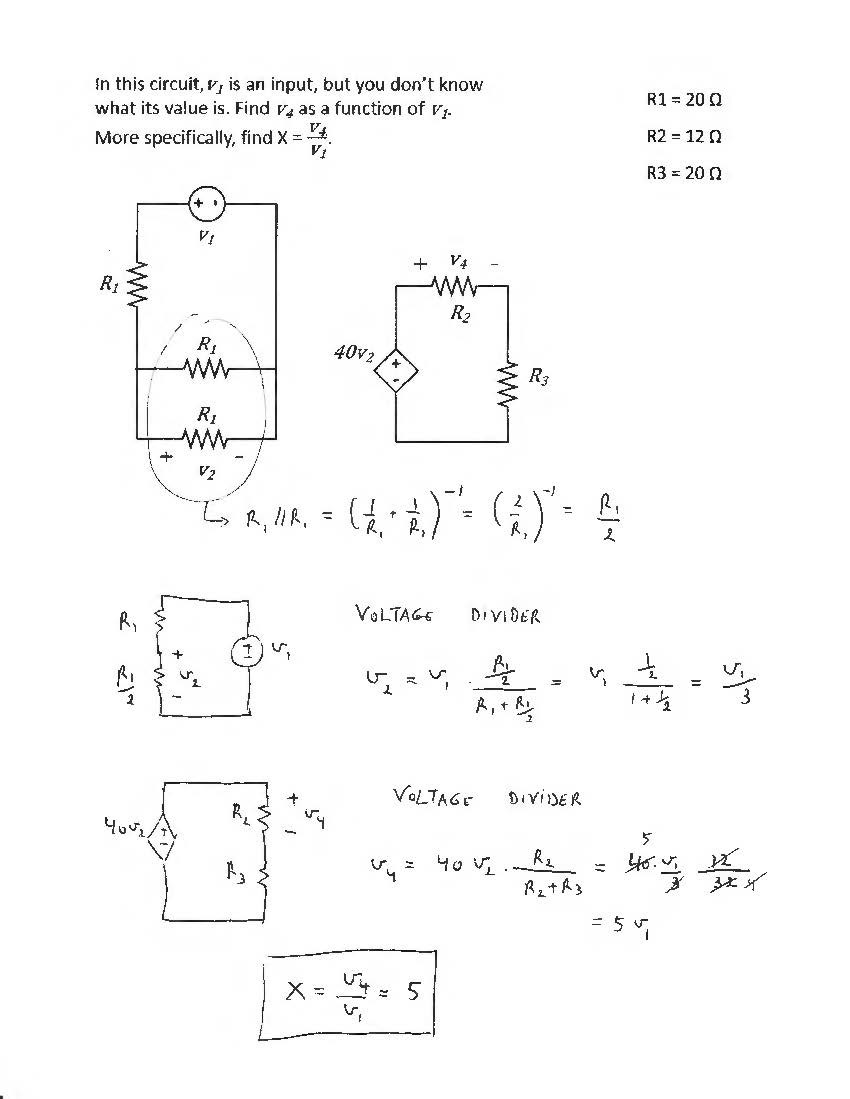 In this circuit, v₁ is an input, but you don't know
what its value is. Find v₄ as a function of v₁.
More specifically, find X = v₄/v₁.
R1 = 20 Ω
R2 = 12 Ω
R3 = 20 Ω
+ -
v₁
R₁
R₁
R₁
+ -
v₂
+ v₄ -
R₂
40v₂
+
-
R₃
↳ R₁//R₁ = (1/R₁ + 1/R₁)⁻¹ = (2/R₁)⁻¹ = R₁/2
R₁
R₁/2
+
v₂
-
v₁
VOLTAGE DIVIDER
v₂ = v₁ · (R₁/2)/(R₁ + R₁/2) = v₁ (1/2)/(1 + 1/2) = v₁/3
40v₂
+
-
R₂
R₃
+
v₄
-
VOLTAGE DIVIDER
5
v₄ = 40 v₂ · R₂/(R₂ + R₃) = 40 · v₁/3 12/32 4
= 5 v₁
X = v₄/v₁ = 5